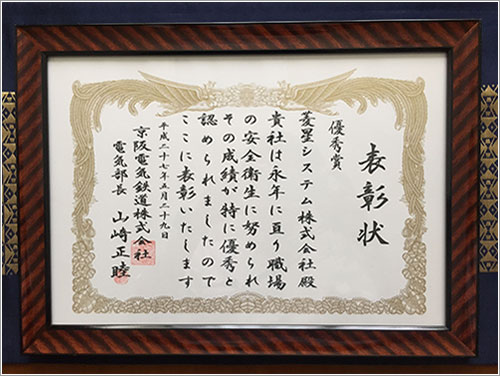 表彰状
優秀賞
菱星システム株式会社殿
貴社は永年に亘り職場
の安全衛生に努められ
その成績が特に優秀と
認められましたので
ここに表彰いたします
平成二十七年五月二十九日
京阪電気鉄道株式会社
電気部長 山﨑正睦